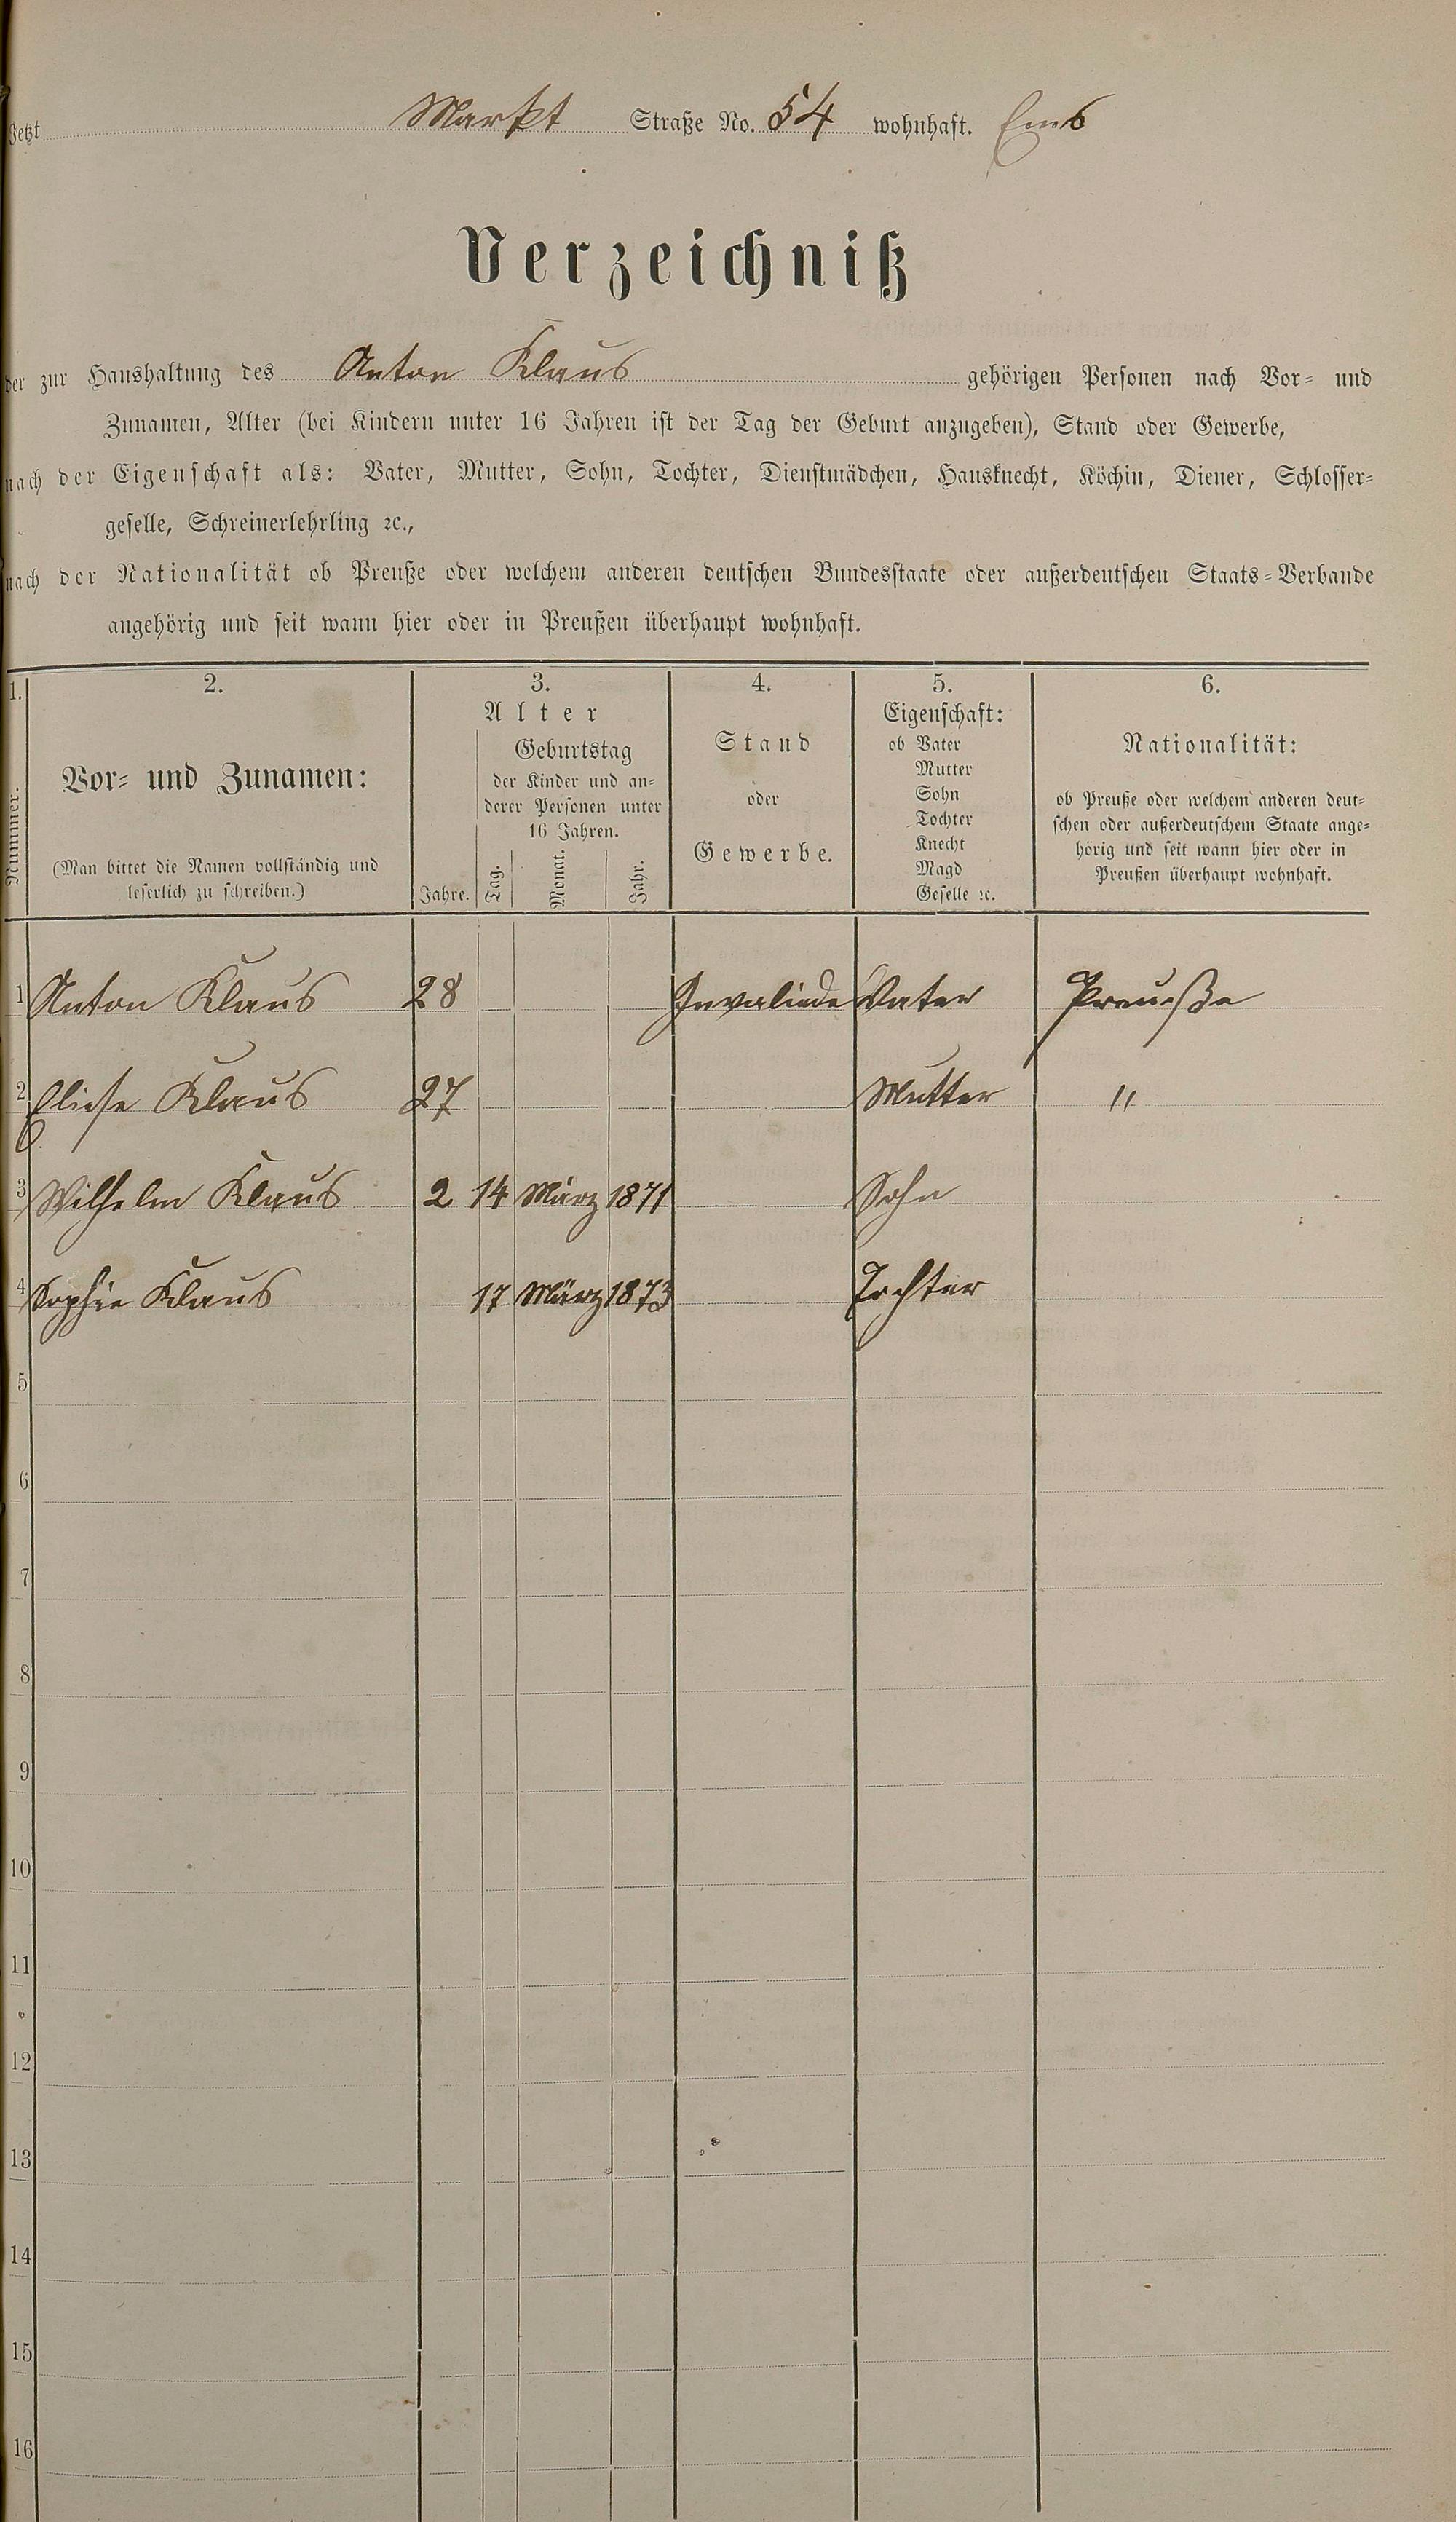 Jetzt Markt Straße No. 54 wohnhaft. Ems
Verzeichniß
der zur Haushaltung des Anton Klaus gehörigen Personen nach Vor- und
Zunamen, Alter (bei Kindern unter 16 Jahren ist der Tag der Geburt anzugeben), Stand oder Gewerbe,
nach der Eigenschaft als: Vater, Mutter, Sohn, Tochter, Dienstmädchen, Hausknecht, Köchin, Diener, Schlosser-
geselle, Schreinerlehrling ꝛc.,
nach der Nationalität ob Preuße oder welchem anderen deutschen Bundesstaate oder außerdeutschen Staats-Verbande
angehörig und seit wann hier oder in Preußen überhaupt wohnhaft.
1.
Nummer.
2.
Vor- und Zunamen:
(Man bittet die Namen vollständig und
leserlich zu schreiben.)
3.
Alter
Jahre.
Geburtstag
der Kinder und an-
derer Personen unter
16 Jahren.
Tag. Monat. Jahr.
4.
Stand
oder
Gewerbe.
5.
Eigenschaft:
ob Vater
Mutter
Sohn
Tochter
Knecht
Magd
Geselle ꝛc.
6.
Nationalität:
ob Preuße oder welchem anderen deut-
schen oder außerdeutschem Staate ange-
hörig und seit wann hier oder in
Preußen überhaupt wohnhaft.
1 Anton Klaus 28 Invaliede Vater Preuße
2 Eliese Klaus 27 Mutter "
3 Wilhelm Klaus 2 14 März 1871 Sohn
4 Sophie Klaus 17 März 1873 Tochter
5
6
7
8
9
10
11
12
13
14
15
16